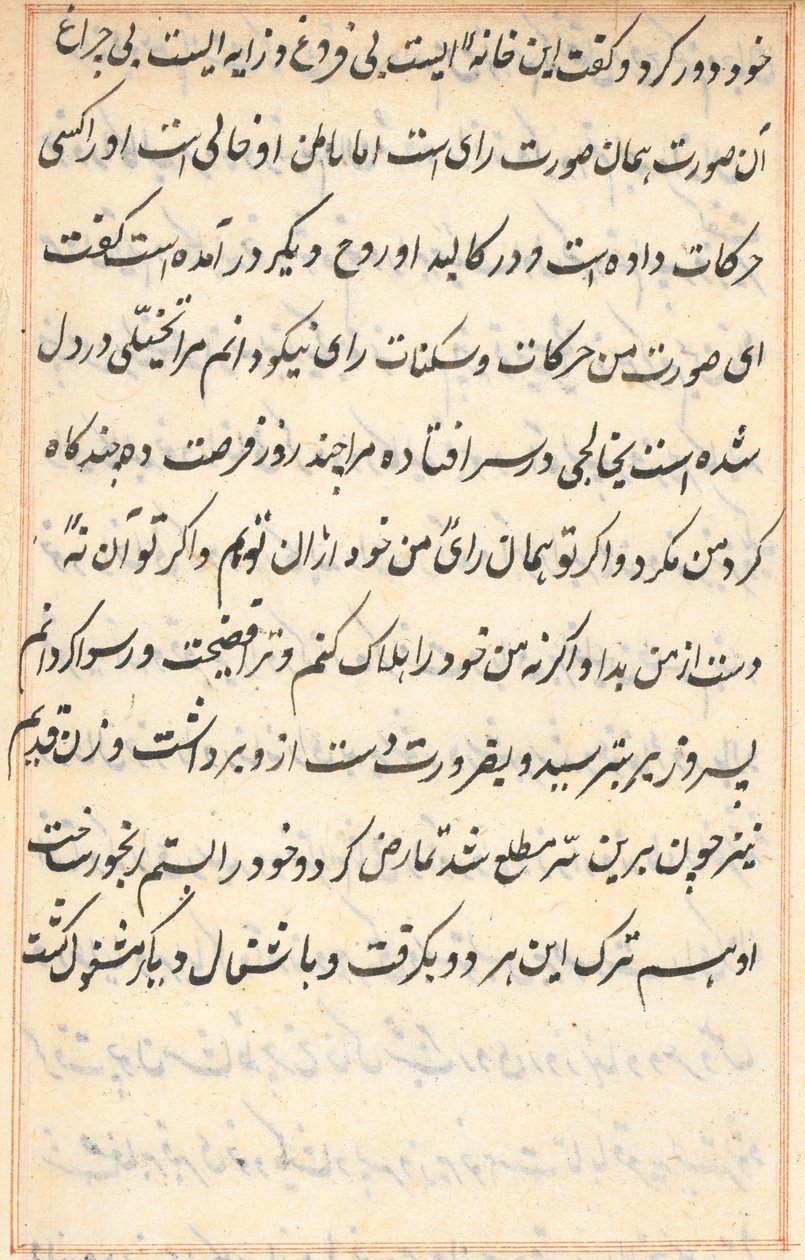 خود دور کرد و گفت این خانهٔ ایست بی فروغ و زایه ایست بی چراغ
آن صورت همان صورت رای است اما باطن او خالی است او را کسی
حرکات داده است و در کالبد او روح دیگر در آمده است گفت
ای صورت من حرکات و سکنات رای نیکو دانم مرا تخیّلی در دل
شده است یخالجی در سر افتاده مرا چند روز فرصت ده چند کاه
کرد من مکرد و اکر تو همان رایٔ من خود ازان توام و اکر تو آن نهٔ
دست از من بدار و اکر نه من خود را هلاک کنم و ترا فضیحت و رسوا کردانم
پسر وزیر بترسید و بضرورت دست از و برداشت و زن قدیم
نیز چون برین سّر مطلع شد تمارض کرد و خود را بستم رنجور ساخت
او هم ترک این هر دو بگرفت و باشتغال دیگر مشغول کشت